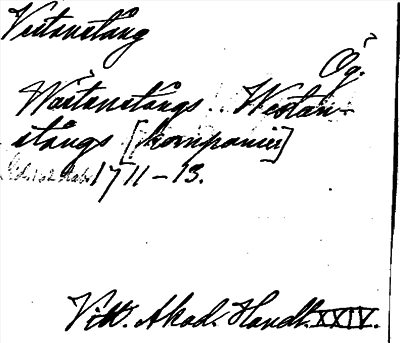 Västanstång
Ög.
Wästanstångs. Westan-
stångs [kompanie]
1711-13.
Vitt. Akad. Handl. XXIV.